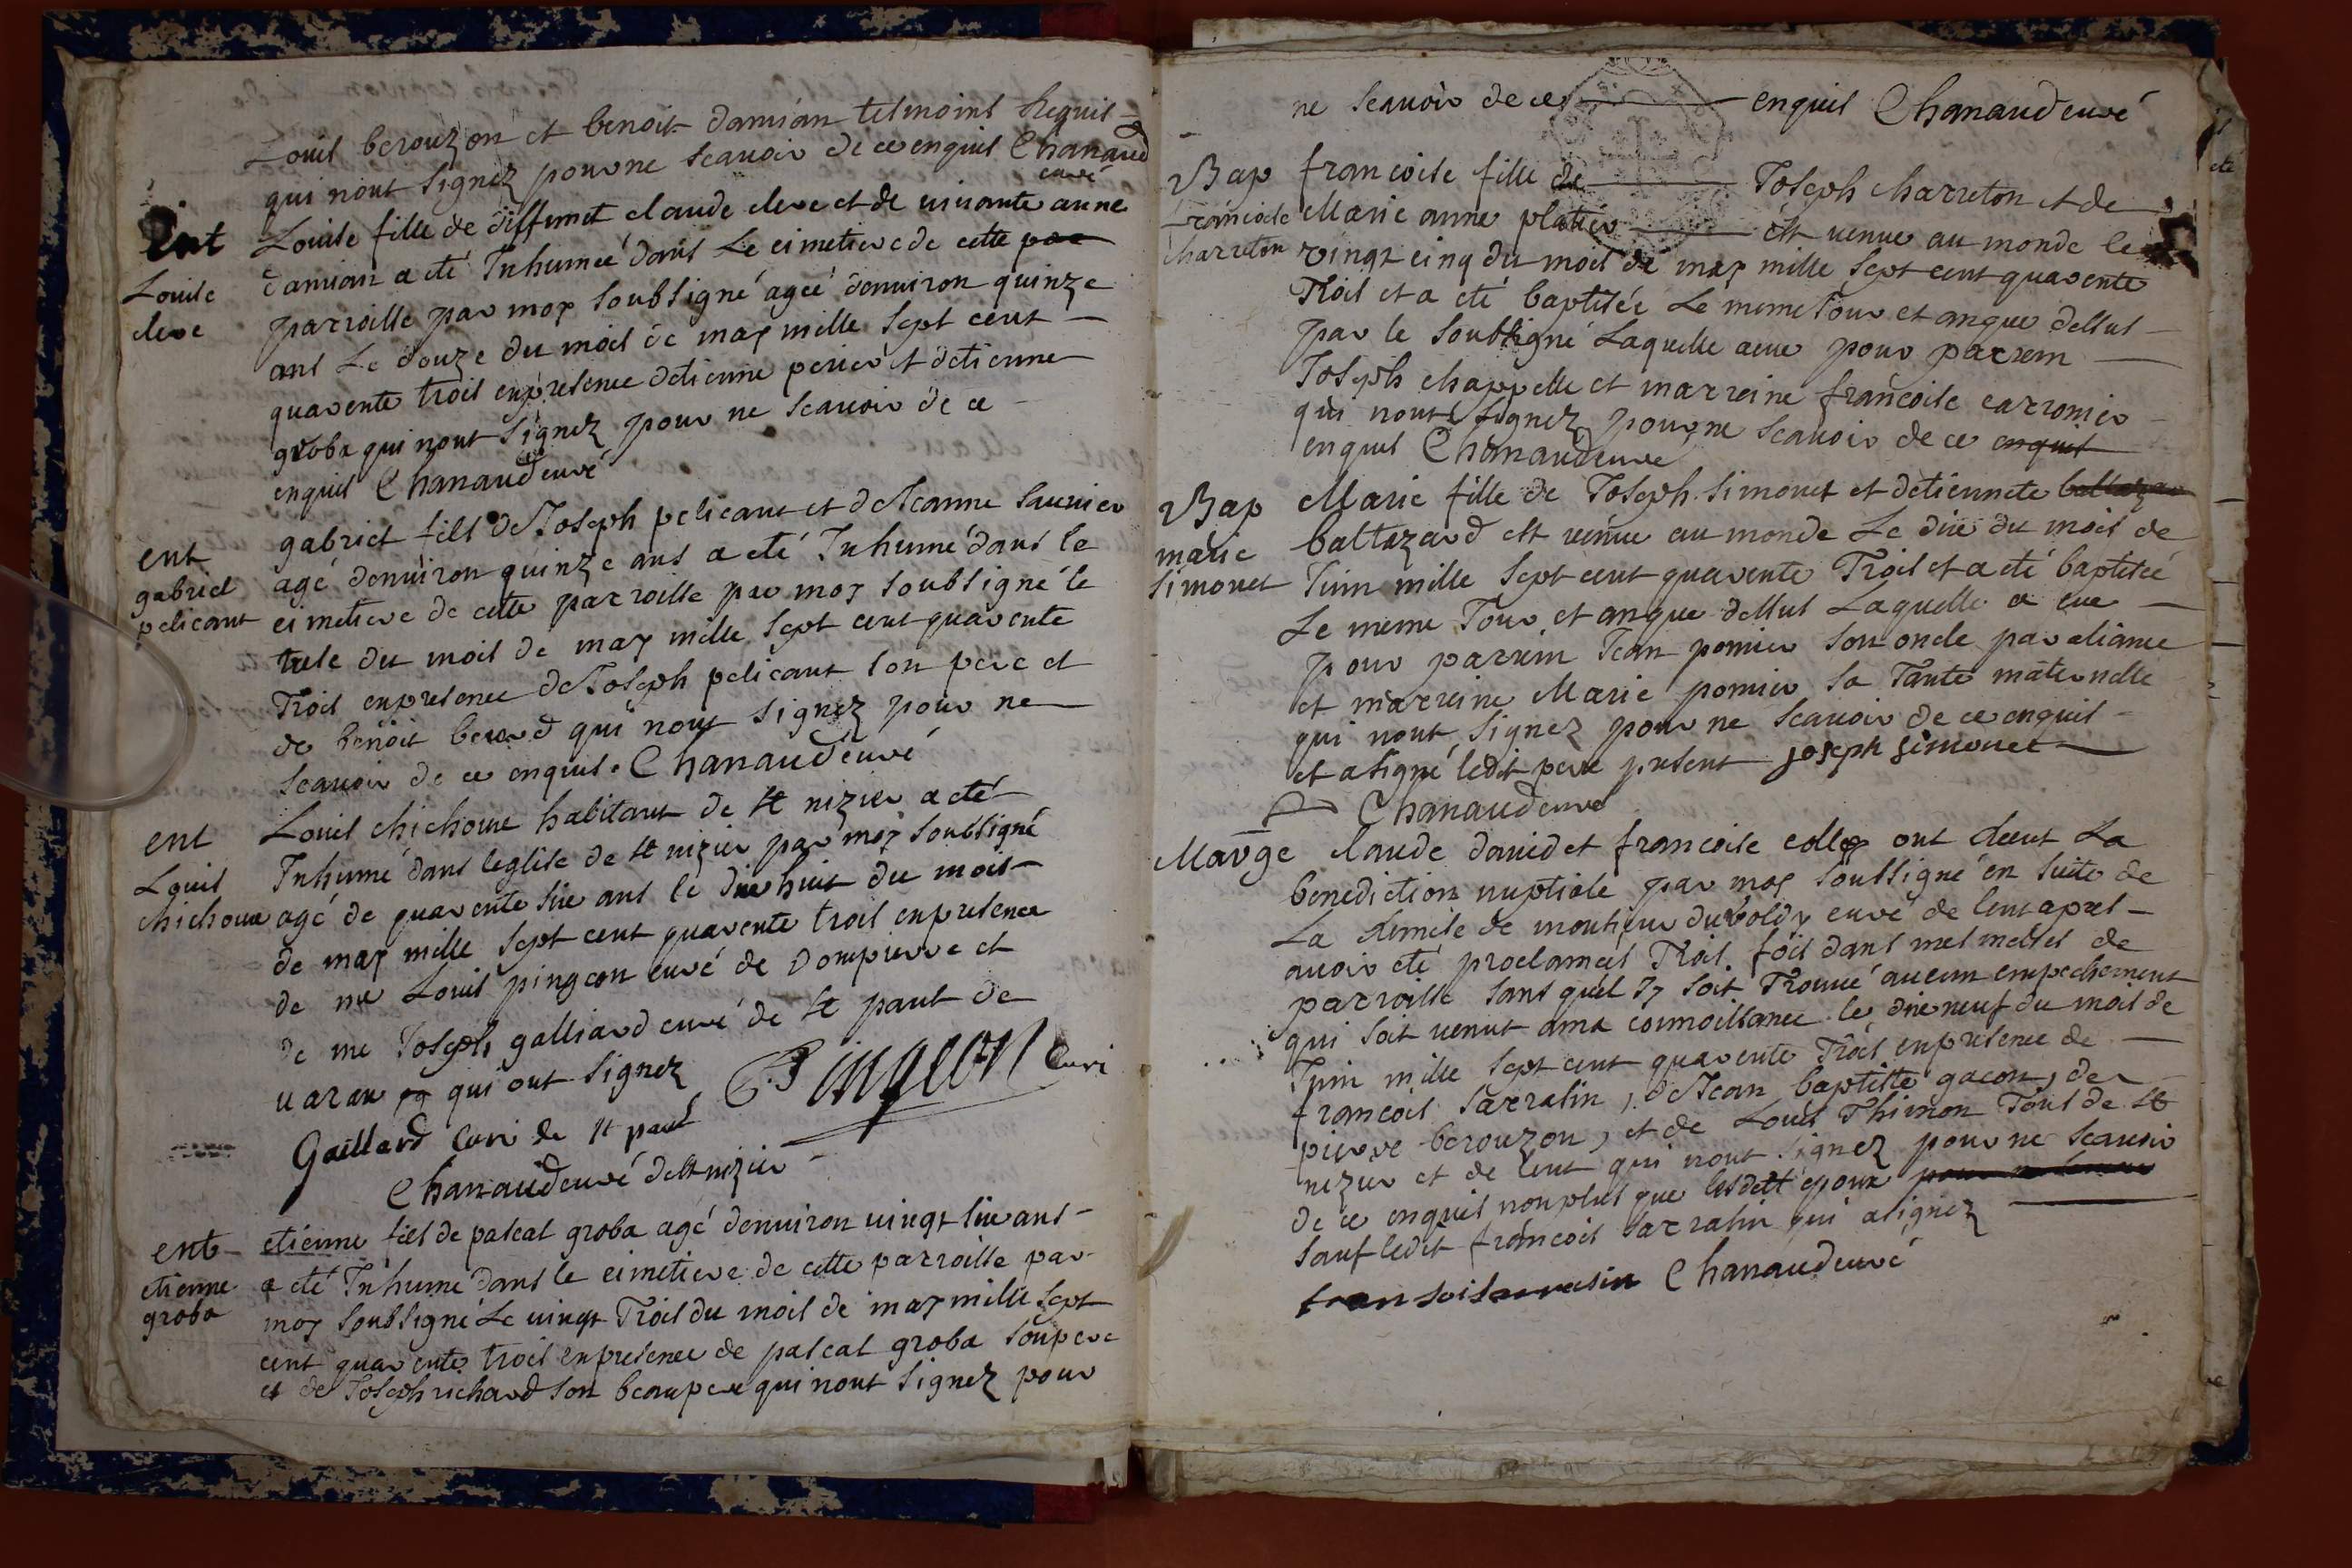 Louis berouzon et benoit damian tesmoins Requis
qui nont signez pour ne scauoir de ce enquis Chanaud
curé
Ent Louise fille de deffunct claude clere et de viuante anne
Louise damian a eté Inhumée dans Le cimetiere de cette par
clere parroisse par moy soubsigné agée denuiron quinze
ans Le douze du mois de may mille sept cent
quarente trois enpresence detienne perier et detienne
groba qui nont signez pour ne scauoir de ce
enquis Chanaud curé
gabriel fils de Joseph pelicant et de Jeanne saunier
ent agé denuiron quinze ans a eté Inhumé dans le
gabriel cimetiere de cette parroisse par moy soubsigné le
pelicant
tresie du mois de may mille sept cent quarente
Trois enpresence de Joseph pelicant son pere et
de benoit berard qui nont signez pour ne
scauoir de ce enquis. Chanaud curé
ent Louis chichoux habitant de st nizier a eté
Louis Inhumé dans leglise de st nizier par moy soubsigné
chichoux agé de quarente six ans le dix huit du mois
de may mille sept cent quarente trois enpresence
de me Louis pingeon curé de Dompierre et
de me Joseph galliard curé de st paul de
uarax qui ont signez Pingeon curé
Gaillard Curé de st paul
Chanaud curé de st nizier
ent etienne fils de pascal groba agé denuiron vingt six ans
etienne a eté Inhumé dans le cimetiere de cette parroisse par
groba moy soubsigné Le vingt Trois du mois de may mille sept
cent quarente trois enpresence de pascal groba son pere
et de Joseph richard son beaupere qui nont signez pour
ne scauoir de ce enquis Chanaud curé
Bap francoise fille de Joseph charreton et de
francoise Marie anne platier est venue au monde le
charreton vingt cinq du mois de may mille sept cent quarente
Trois et a eté baptisée Le meme Jour et anque dessus
par le soubsigné Laquelle aeue pour parrein
Joseph chappelle et marreine francoise carronier
qui nont signez pour ne scauoir de ce enquis
enquis Chanaud curé
Bap Marie fille de Joseph simonet et detiennete baltazar
marie baltazard est venue au monde Le dix du mois de
simonet Juin mille sept cent quarente Trois et a eté baptisée
Le meme Jour et anque dessus Laquelle a eue
pour parrein Jean pomier son oncle par aliance
et marreine Marie pomier sa Tante maternelle
qui nont signez pour ne scauoir de ce enquis
et a signé ledit pere present joseph simonet
Chanaud curé
Marge claude dauid et francoise colley ont receut La
benediction nuptiale par moy soubsigné en suite de
La remise de monsieur duboldy curé de lent apres
auoir eté proclamés Trois fois dans mes messes de
parroisse sans quil sy soit Trouué aucun empechement
qui soit venut ama connoissance le dix neuf du mois de
Juin mille sept cent quarente Trois enpresence de
francois sarrasin, de Jean baptiste gacon, de
pierre berouzon, et de Louis Thimon Tous de st
nizier et de lent qui nont signez pour ne scauoir
de ce enquis nonplus que lesdett epoux
sauf ledit francois sarrasin qui asignez
fransoi sarrasin Chanaud curé